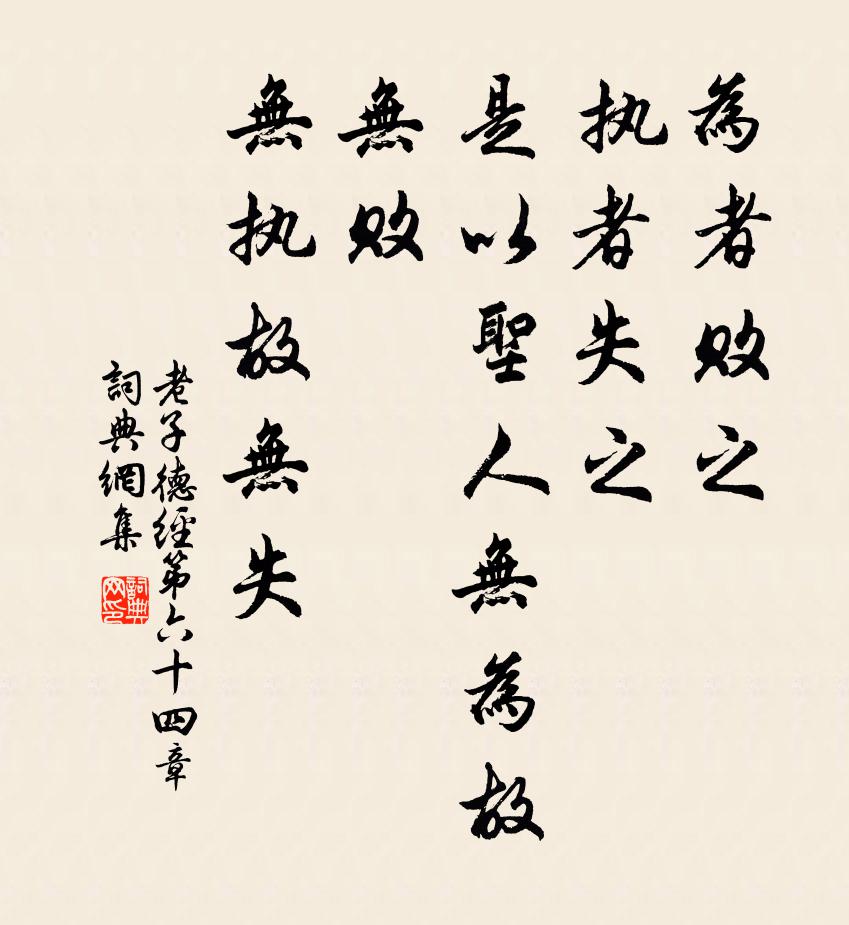 為者败之
执者失之
是以聖人無為故
無败
無执故無失
老子德經第六十四章
詞典網集
詞典网印